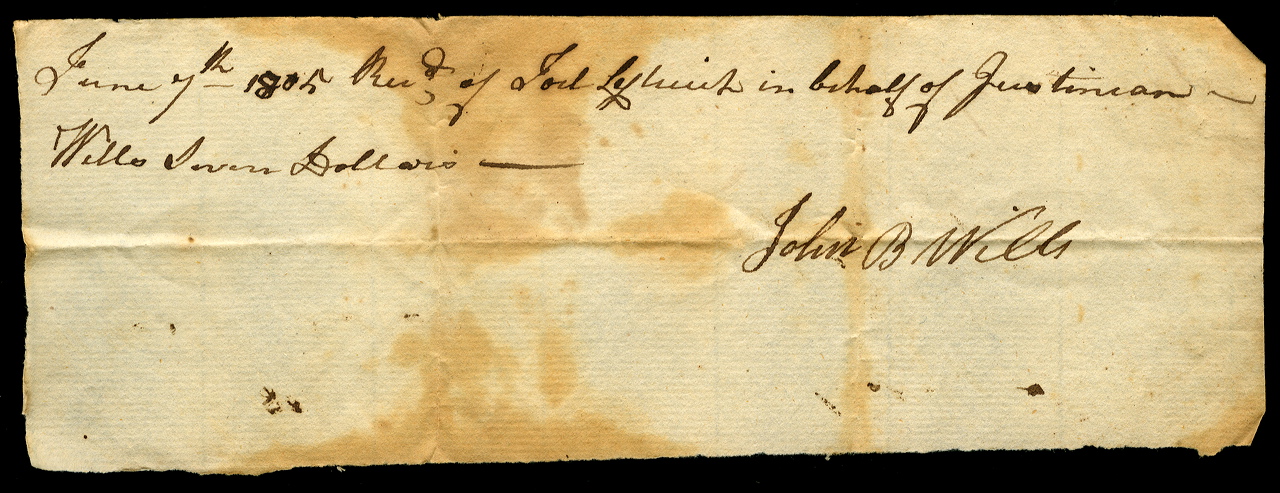 June 7th 1805 Recd of Joel in behalf of Justinian
Wills Seven Dollars
John B Wills